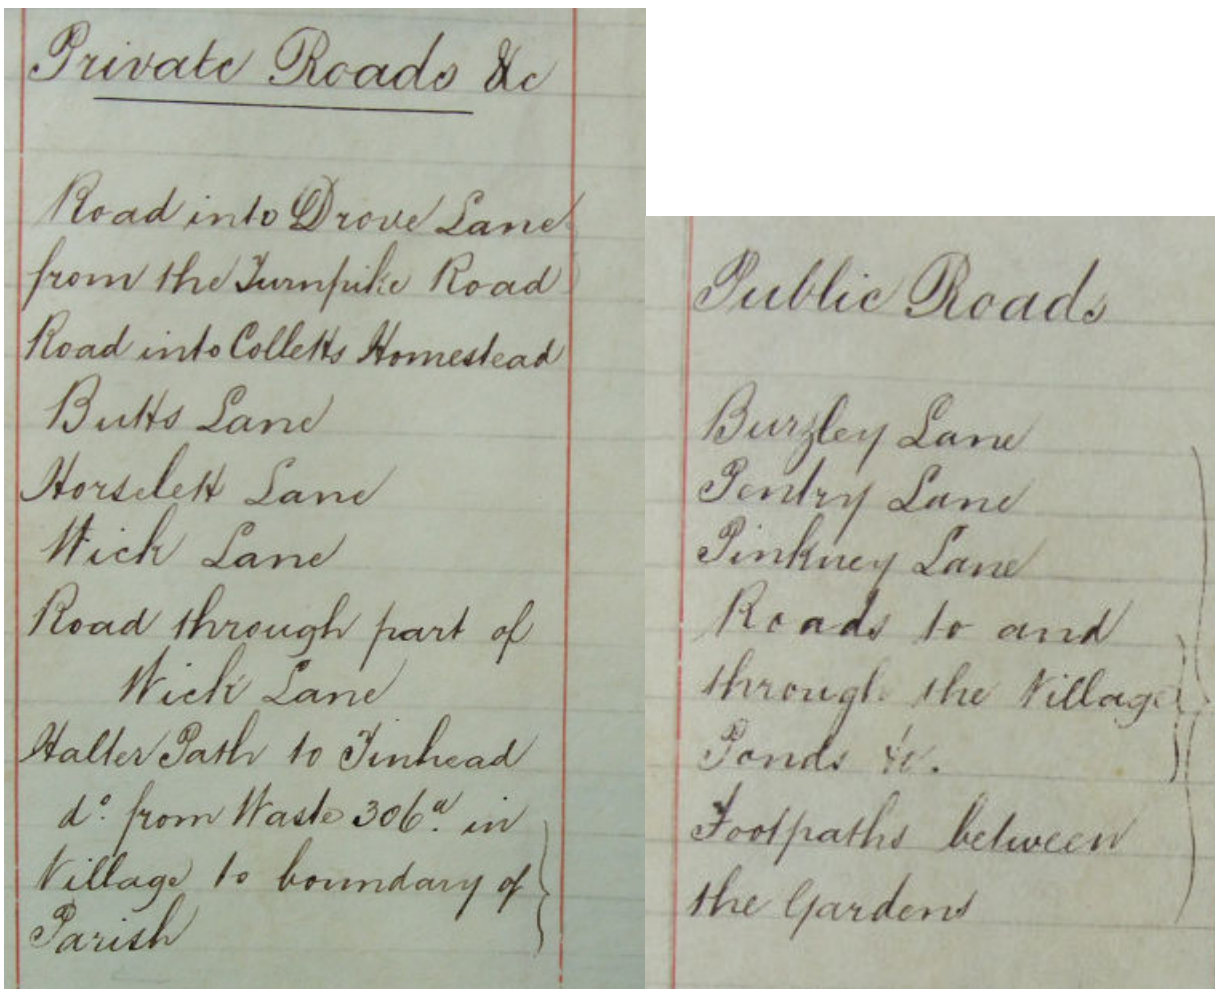 Private Roads &c
Road into Drove Lane
from the Turnpike Road
Road into Colletts Homestead
Butts Lane
Horselett Lane
Wick Lane
Road through part of
Wick Lane
Halter Path to Tinhead
do. from Waste 306a. in
Village to boundary of
Parish
Public Roads
Burzley Lane
Pentry Lane
Pinkney Lane
Roads to and
through the Village
Ponds &c.
Footpaths between
the Gardens